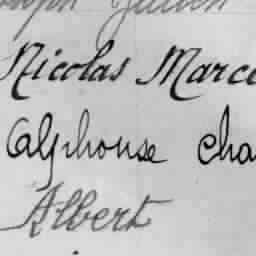 Joseph Julien
Nicolas Marce
Alphonse Cha
Albert